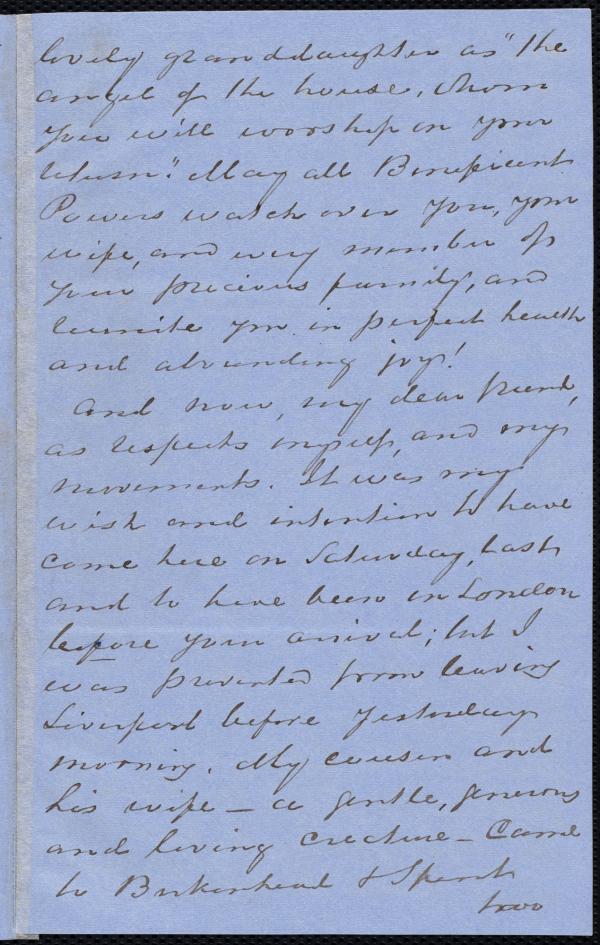 lovely granddaughter as "the
angel of the house, whom
you will worship on your
return." May all Beneficent
Powers watch over you, your
wife, and every member of
your precious family, and
reunite you in perfect health
and abounding joy!
And now, my dear friend,
as respects myself, and my
movements. It was my
wish and intention to have
come here on Saturday last,
and to have been in London
before your arrival; but I
was prevented from leaving
Liverpool before yesterday
morning. My cousin and
his wife – a gentle, generous
and loving creature – came
to Birkenhead & spent
two